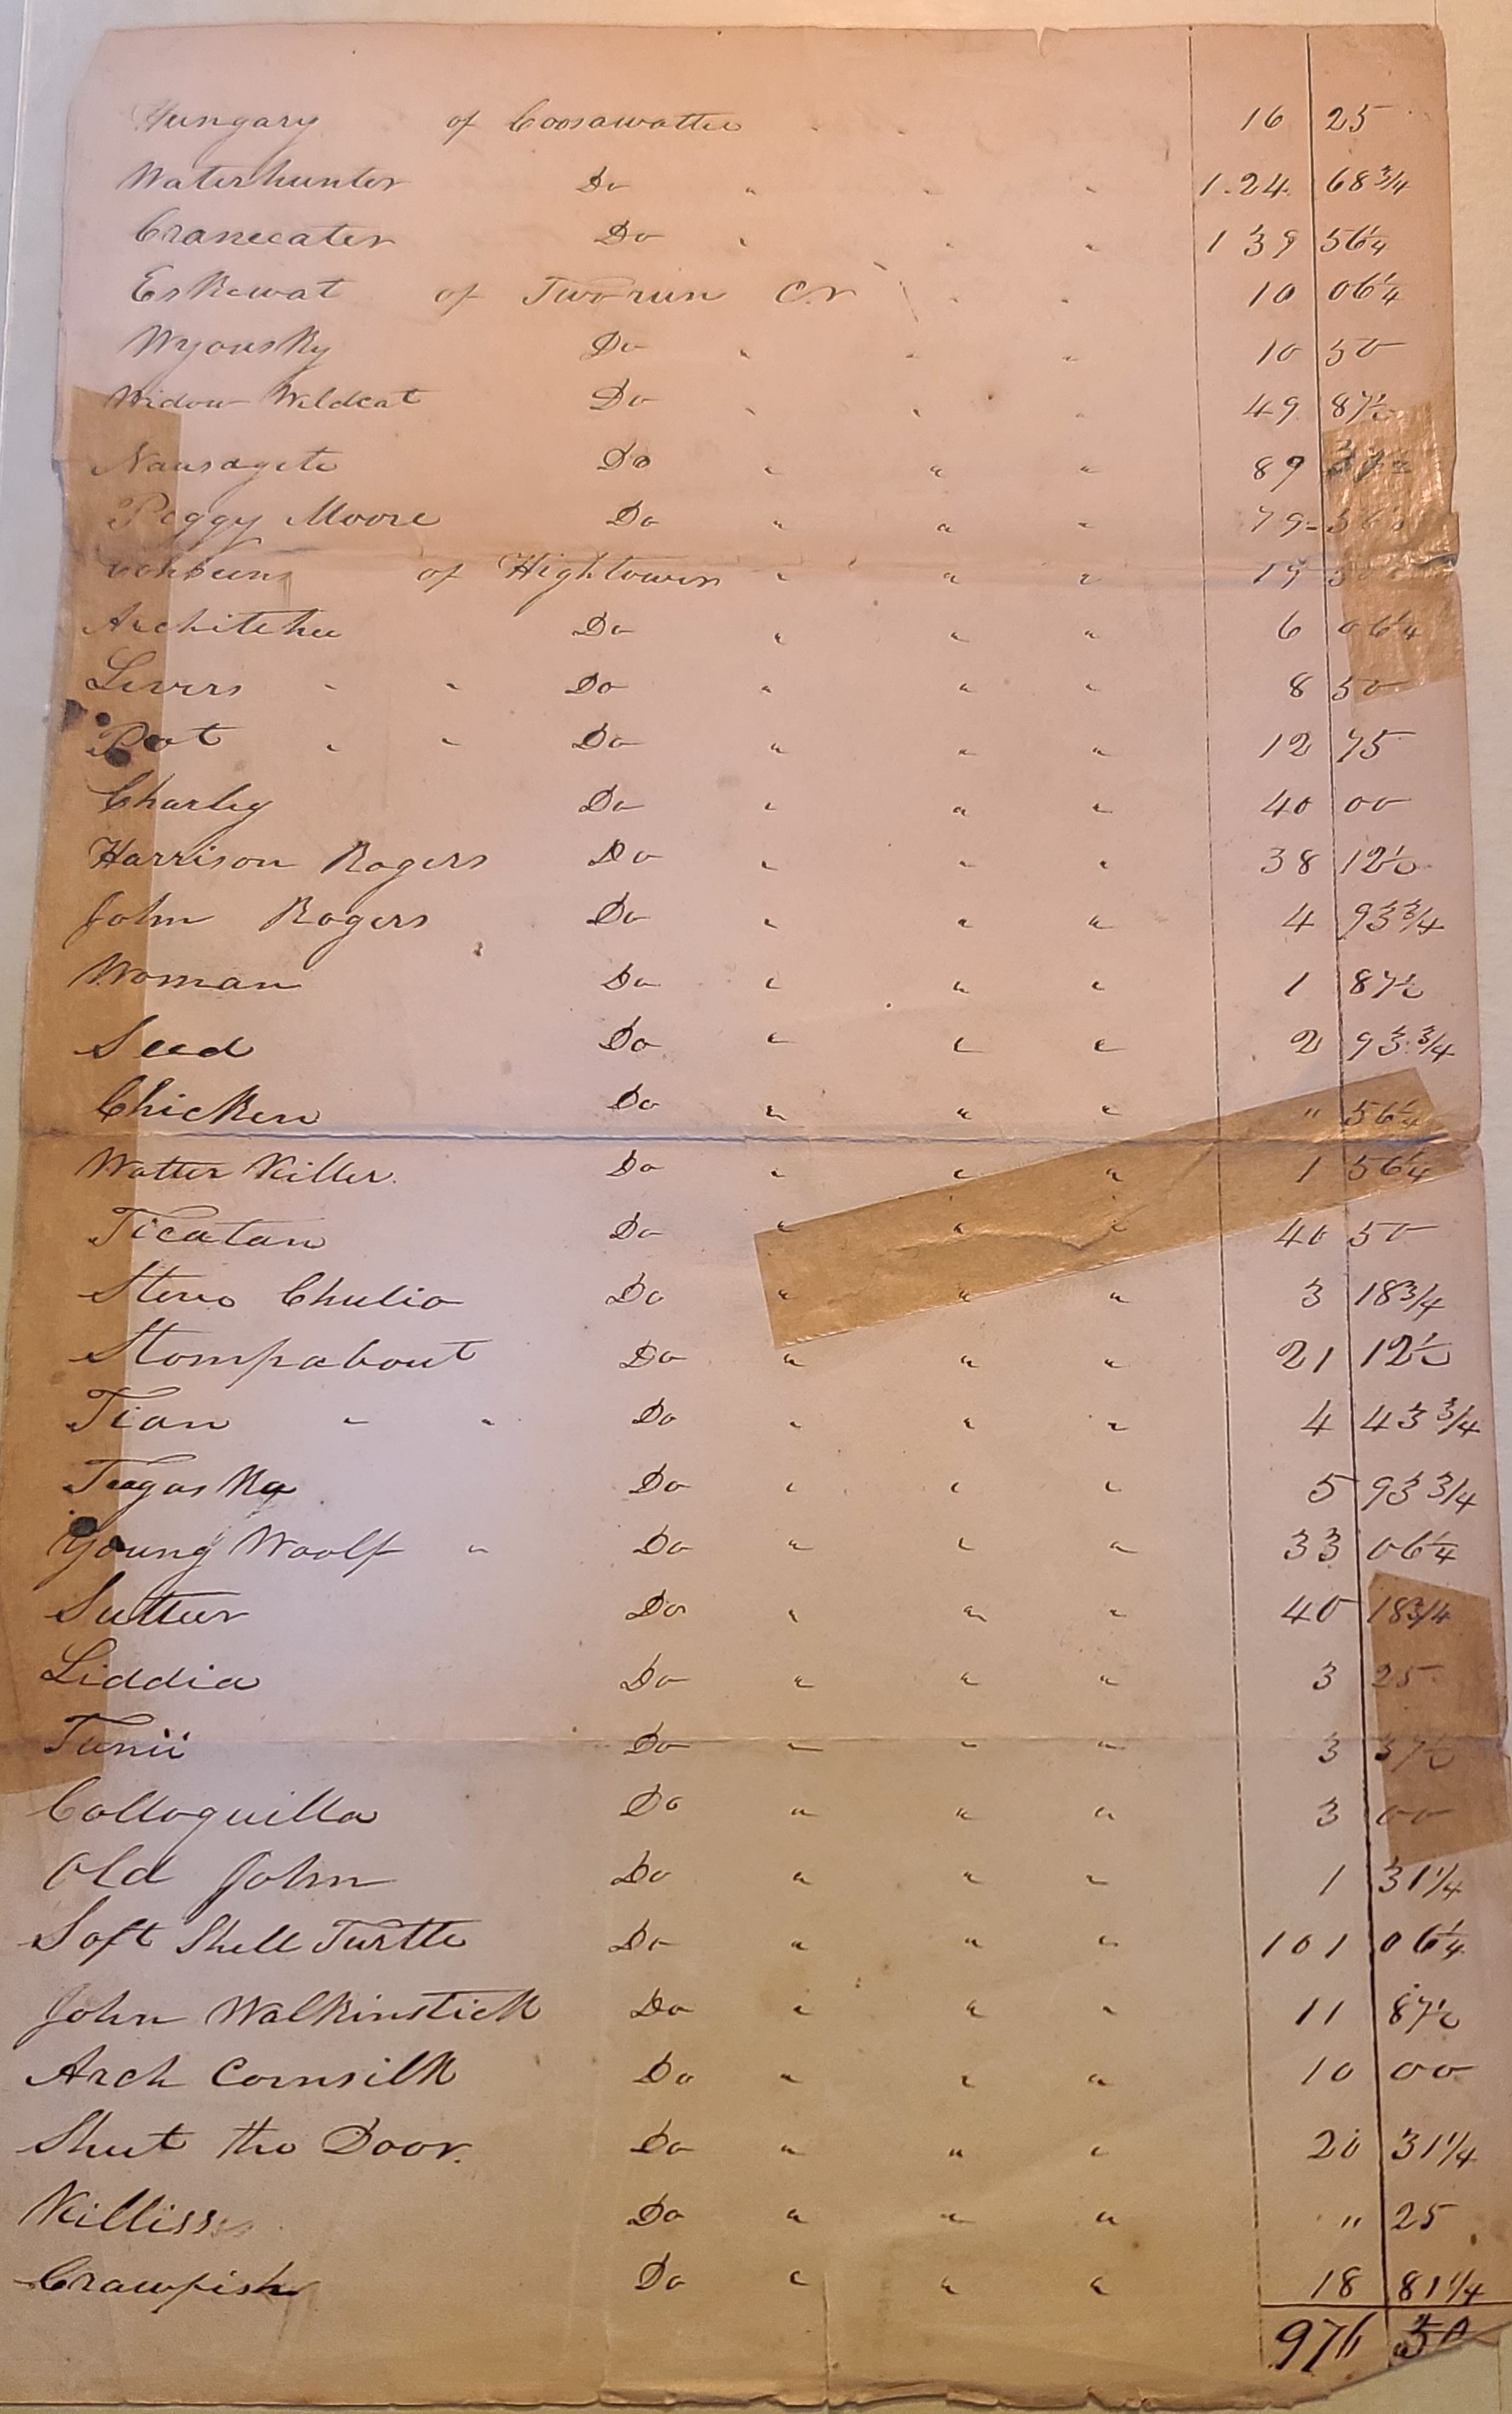 Hungary of Coosawattee 16 25
Waterhunter Do " " " 1.24 68 3/4
Craneeater Do " " " 1 39 56 1/4
Eskewat of Two run Cr " " 10 06 1/4
Wyousky Do " " " 10 50
Widow Wildcat Do " " " 49 87 1/2
Nausagete Do " " " 89
Peggy Moore Do " " " 79
of Hightower " " " 19
Architehee Do " " " 6 06 1/4
Livers " " Do " " " 8 50
Pot " " Do " " " 12 75
Charley Do " " " 40 00
Harrison Rogers Do " " " 38 12 1/2
John Rogers Do " " " 4 93 3/4
Woman Do " " " 1 87 1/2
Seed Do " " " 2 93 3/4
Chicken Do " " " " 56 1/4
Watter Killer. Do " " " 1 56 1/4
Ticatan Do " " " 40 50
Chulio Do " " " 3 18 3/4
Stompabout Do " " " 21 12 1/2
Tian " " Do " " " 4 43 3/4
Do " " " 5 93 3/4
Young Woolf " Do " " " 33 06 1/4
Suttur Do " " " 40 18 3/4
Liddia Do " " " 3 25
Tunii Do " " " 3 37 1/2
Colloquilla Do " " " 3 00
Old John Do " " " 1 31 1/4
Soft Shell Turtle Do " " " 101 06 1/4
John Walkinstick Do " " " 11 87 1/2
Arch Cornsilk Do " " " 10 00
Shut the Door. Do " " " 20 31 1/4
Killiss Do " " " " 25
Crawfish Do " " " 18 81 1/4
976 50